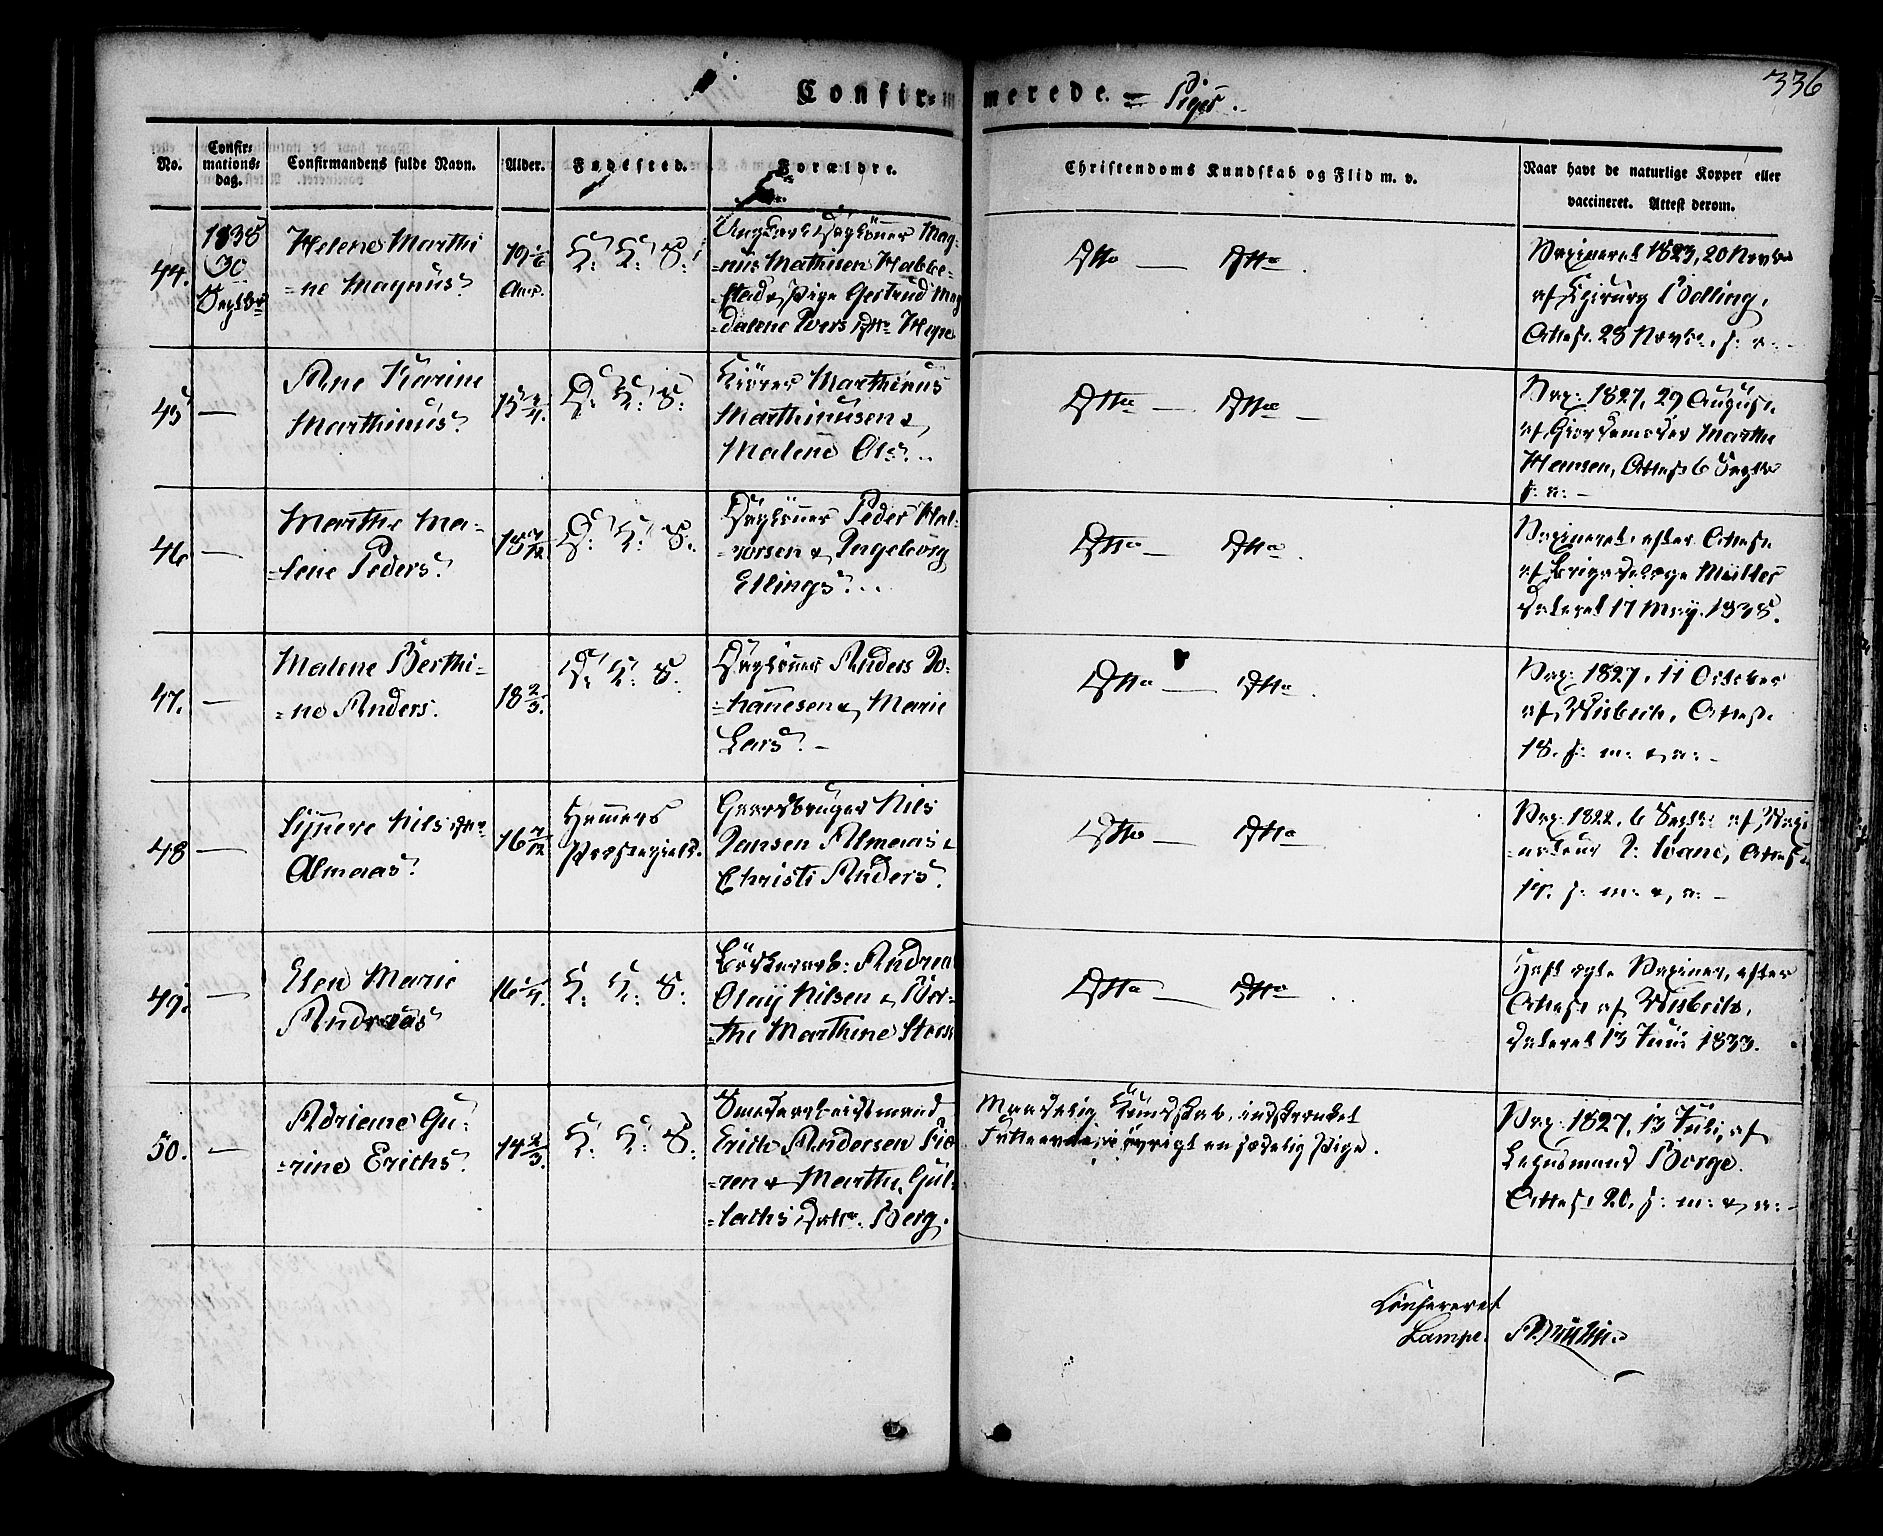 336
Confirmerede. = Piger.
No.
Confir-
mations-
dag.
Confirmandens fulde Navn.
Alder.
Fødested.
Forældre.
Christendoms Kundskab og Flid m. v.
Naar havt de naturlige Kopper eller
vaccineret. Attest derom.
44.
1838
30
Septbr
Helene Marthi
=ne Magnus
19 1/6
Aar.
K: K: S:
Ungkarl Dagloner Mag-
=nus Mathisen Habbe-
=stad & Pige Gertrud Mag
=dalene Ivers Dtr
Dtto — Dtto.
Vaxineret 1823, 20 Novbr
af Chirurg Bolling,
Attest 23 Novbr. s: a:
45
—
Ane Karine
Marthinus
D: K: S:
Marthinus
Marthinusen &
Malene Ols
Dtto — Dtto —
Vax: 1827, 29 August
af Giordemoder Marthe
Hansen, Attest 6 Septbr
s: a: —
46
—
Marthe Ma-
=lene Peders
15 7/12
D: K: S:
Dagloner Peder Hal-
=vorsen & Ingeborg
Ellings
Dtto — Dtto.
Vaxineret, efter Attest
af Brigadelæge Müller
dateret 17 May 1838.
47.
—
Malene Berthi-
=ne Anders.
18 2/3.
D: K: S.
Dagloner Anders Jo-
=hannesen & Marie
Lars. —
Dtto — Dtto.
Vax: 1827, 11 October
af Wisbech, Attest
18. s: m: & a: —
48
—
Nils Dtr
Almaas
16 7/12
Hammers
Præstegjeld.
Gaardbruger Nils
Jansen Almaas &
Christi Anders.
Dtto — Dtto
Vax: 1822, 6 Septbr af Vaxi
=nateur Attest
s: m: & a: —
49.
—
Elen Marie
Andreas
16 1/4.
K: K: S:
Andrea
Olaij Nilsen & Ber-
=the Marthine
Dtto — Dtto
Haft ægte Vaxiner, efter
Attest af Wisbech,
dateret 13 Juni 1833.
50.
—
Adriane Gu-
=rine Erichs
14 2/3.
K: K: S:
Smedarbeidsmand
Erich Andersen
& Marthe Gul-
=lachs Datr. Berg.
Maadelig Kundskab, indskrænket
iøvrigt en sædelig Pige.
Vax: 1827, 13 Juli, af
Lehnsmand Borge.
Attest 20. s: m: & a: —
Confereret
Lampe.